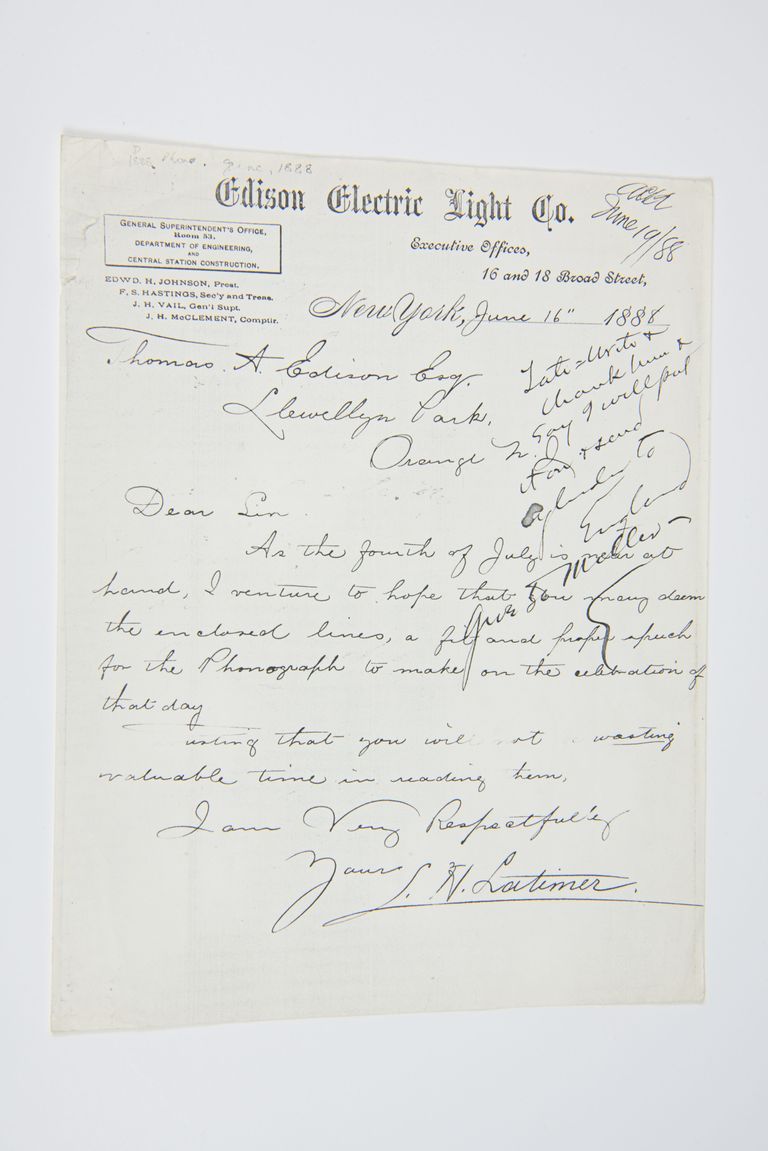 1888, Phono. June, 1888
Edison Electric Light Co.
June 19/88
GENERAL SUPERINTENDENT'S OFFICE,
Room 53.
DEPARTMENT OF ENGINEERING,
AND
CENTRAL STATION CONSTRUCTION.
Executive Offices,
16 and 18 Broad Street,
EDWD. H. JOHNSON, Prest.
F. S. HASTINGS, Sec'y and Treas.
J. H. VAIL, Gen'l Supt.
J. H. McCLEMENT, Comptlr.
New York, June 16" 1888
Thomas. A. Edison Esq.
Llewellyn Park.
Orange N. J
Tate = Write &
thank him &
Say I will put
it on & send
cylinder to
England
Give to Miller
Dear Sir
As the fourth of July is near at
hand, I venture to hope that you may deem
the enclosed lines, a fit and proper speech
for the Phonograph to make on the celebration of
that day
usting that you will ot wasting
valuable time in reading them,
I am Very Respectful'y
Your L. H. Latimer.